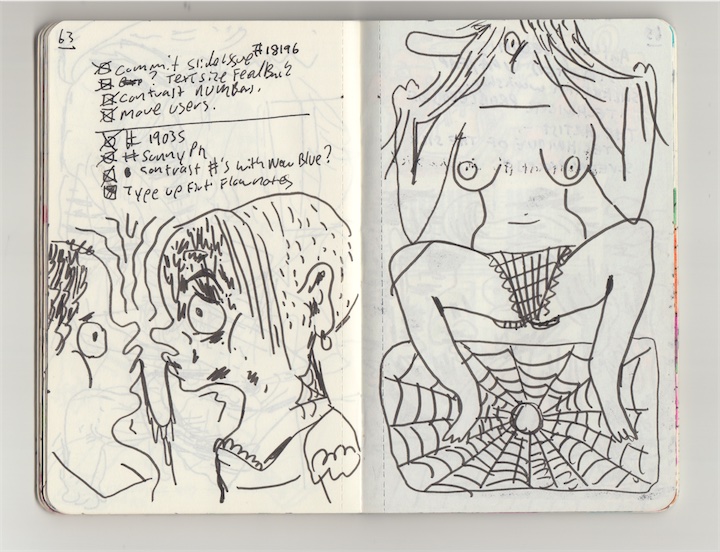 63
#18196
commit slide issue
? Text size Feedback
contrast numbers.
move users.
# 19035
# Sunny Ph
contrast #'s with New Blue?
Type up Flownotes